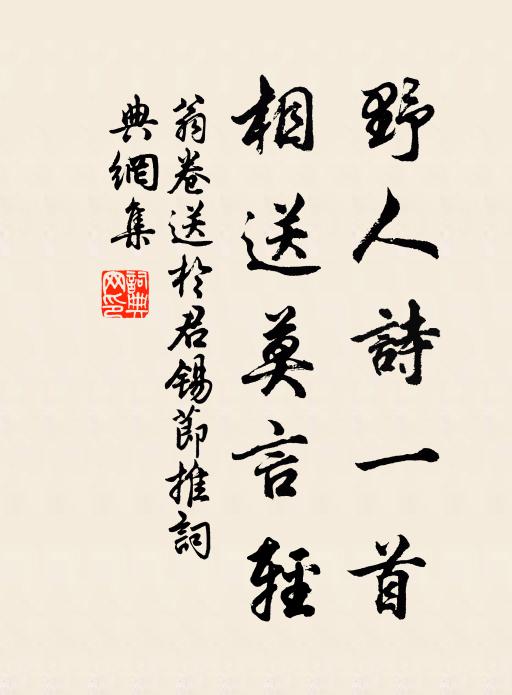 野人詩一首
相送莫言輕
翁卷送於君錫節推詞
典網集
詞典網印